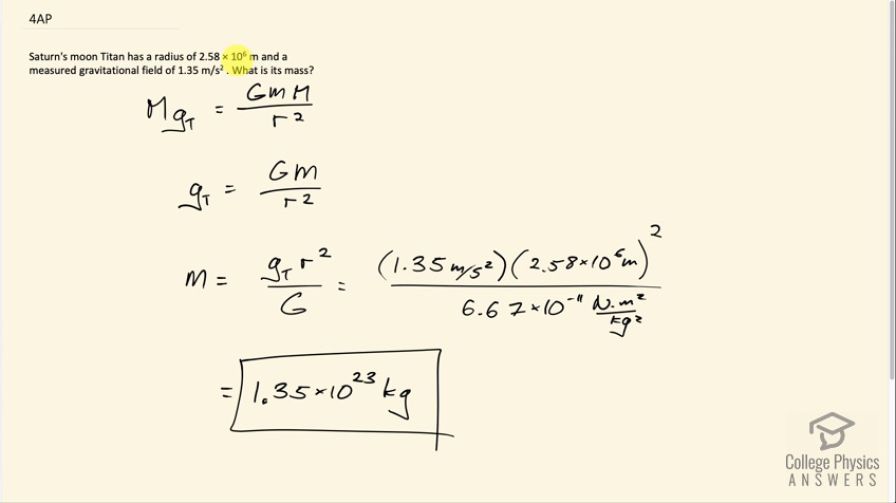 4AP
Saturn's moon Titan has a radius of 2.58 × 10⁶ m and a
measured gravitational field of 1.35 m/s² . What is its mass?
M g_T = GmM / r²
g_T = Gm / r²
m = g_T r² / G = (1.35 m/s²)(2.58×10⁶m)² / 6.67×10⁻¹¹ N·m²/kg²
= 1.35×10²³ kg
College Physics
ANSWERS